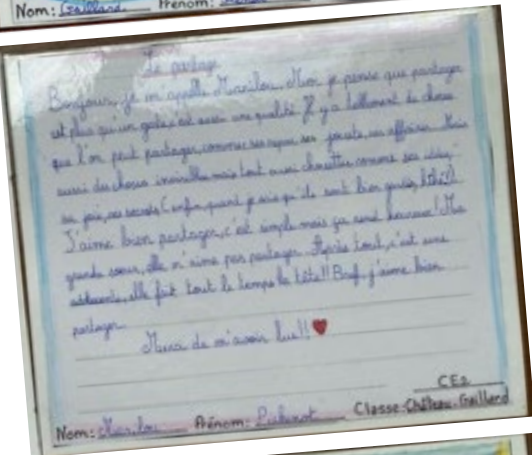 Nom: Gaillard Prénom:
Le partage
Bonjour, je m'appelle Marilou. Moi je pense que partager
est plus qu'un geste, c'est aussi une qualité. Il y a tellement de choses
que l'on peut partager, comme ses repas, ses jouets, ses affaires. Mais
aussi des choses invisibles mais tout aussi chouettes comme ses idées,
sa joie, ses secrets (enfin, quand je sais qu'ils sont bien gardés, héhé!).
J'aime bien partager, c'est simple mais ça rend heureux! Ma
grande soeur, elle n'aime pas partager. Après tout, c'est une
adolescente, elle fait tout le temps la tête!! Bref, j'aime bien
partager.
Merci de m'avoir lue!!
CE2
Nom: Marilou Prénom: Classe: Château-Gaillard